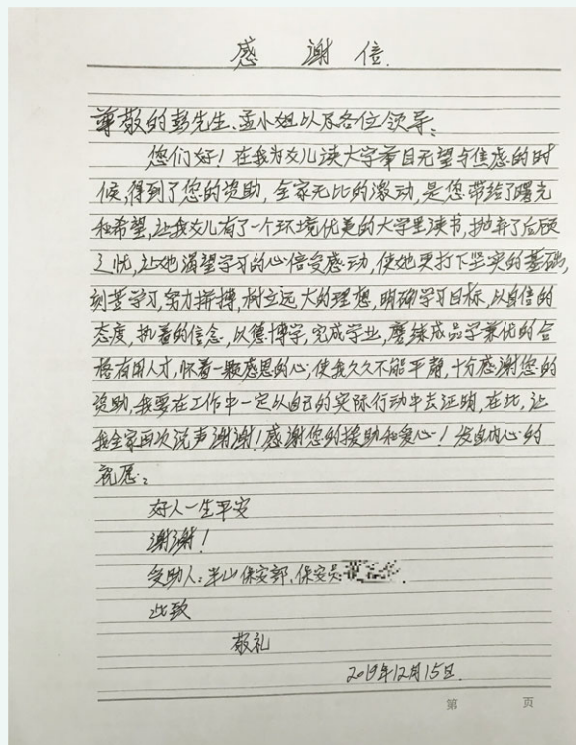 感谢信.
尊敬的彭先生、孟小姐以及各位领导:
您们好!在我为女儿读大学举目无望与焦虑的时
候,得到了您的资助,全家无比的激动,是您带给了曙光
和希望,让我女儿有了一个环境优美的大学里读书,抛弃了后顾
之忧,让她渴望学习的心倍受感动,使她更打下坚实的基础,
刻苦学习,努力拼搏,树立远大的理想,明确学习目标,以自信的
态度,执着的信念,以德博学,完成学业,磨练成品学兼优的合
格有用人才,怀着一颗感恩的心;使我久久不能平静,十分感谢您的
资助,我要在工作中一定以自己的实际行动中去证明,在此,让
我全家再次说声谢谢!感谢您的援助和爱心!发自内心的
祝愿:
好人一生平安
谢谢!
受助人:半山保安部,保安员
此致
敬礼
2019年12月15日.
第 页